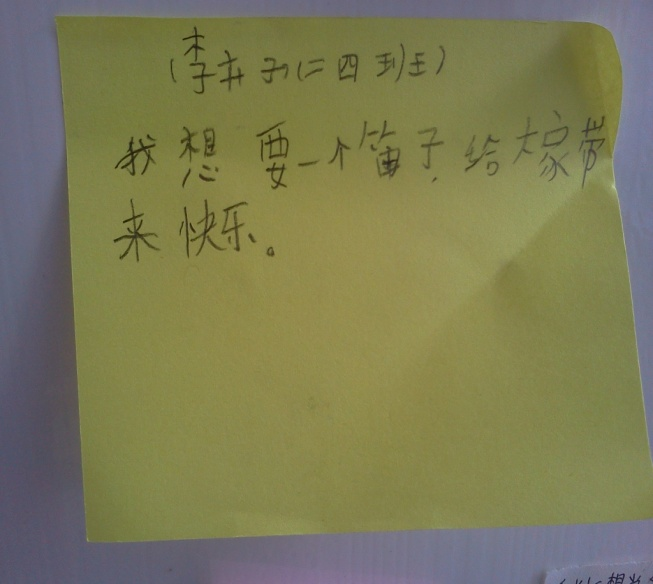 (李卉子(二四班)
我想要一个笛子,给大家带
来快乐。